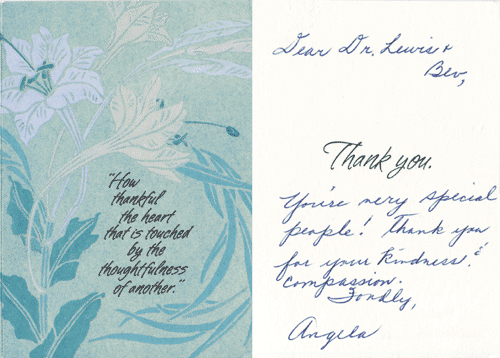 "How
thankful
the heart
that is touched
by the
thoughtfulness
of another."
Dear Dr. Lewis &
Bev,
Thank you.
You're very special
people! Thank you
for your kindness &
compassion.
Fondly,
Angela